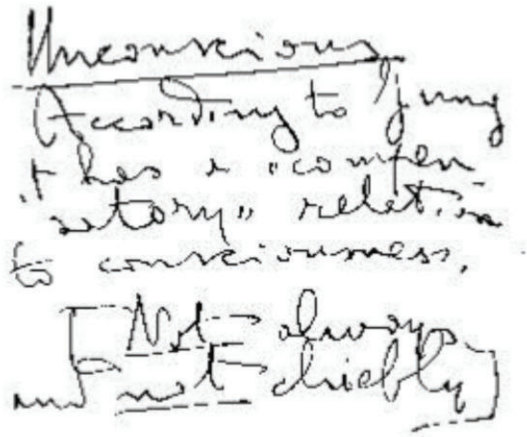 Unconscious
According to Jung
it has a "compen
satory" relation
to consciousness.
[Not always
and not chiefly]